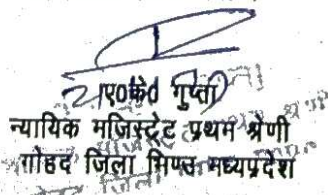 (ए0के0 गुप्ता)
न्यायिक मजिस्ट्रेट प्रथम श्रेणी
गोहद जिला भिण्ड मध्यप्रदेश